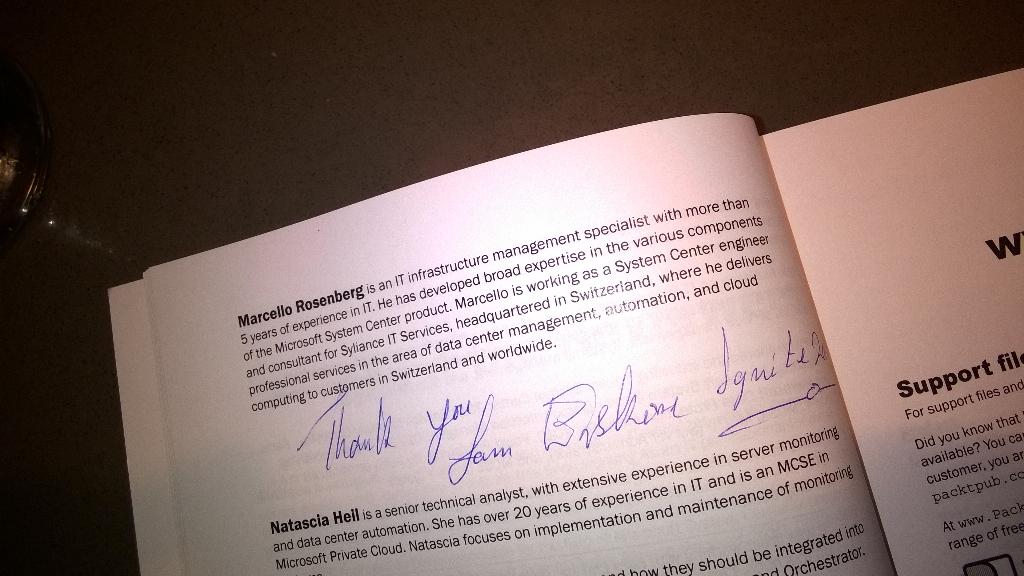 Marcello Rosenberg is an IT infrastructure management specialist with more than
5 years of experience in IT. He has developed broad expertise in the various components
of the Microsoft System Center product. Marcello is working as a System Center engineer
and consultant for Syliance IT Services, headquartered in Switzerland, where he delivers
professional services in the area of data center management, automation, and cloud
computing to customers in Switzerland and worldwide.
Thank you
Natascia Heil is a senior technical analyst, with extensive experience in server monitoring
and data center automation. She has over 20 years of experience in IT and is an MCSE in
Microsoft Private Cloud. Natascia focuses on implementation and maintenance of monitoring
how they should be integrated into
Orchestrator.
Support
For support files and
Did you know that
available? You
customer, you
At
range of